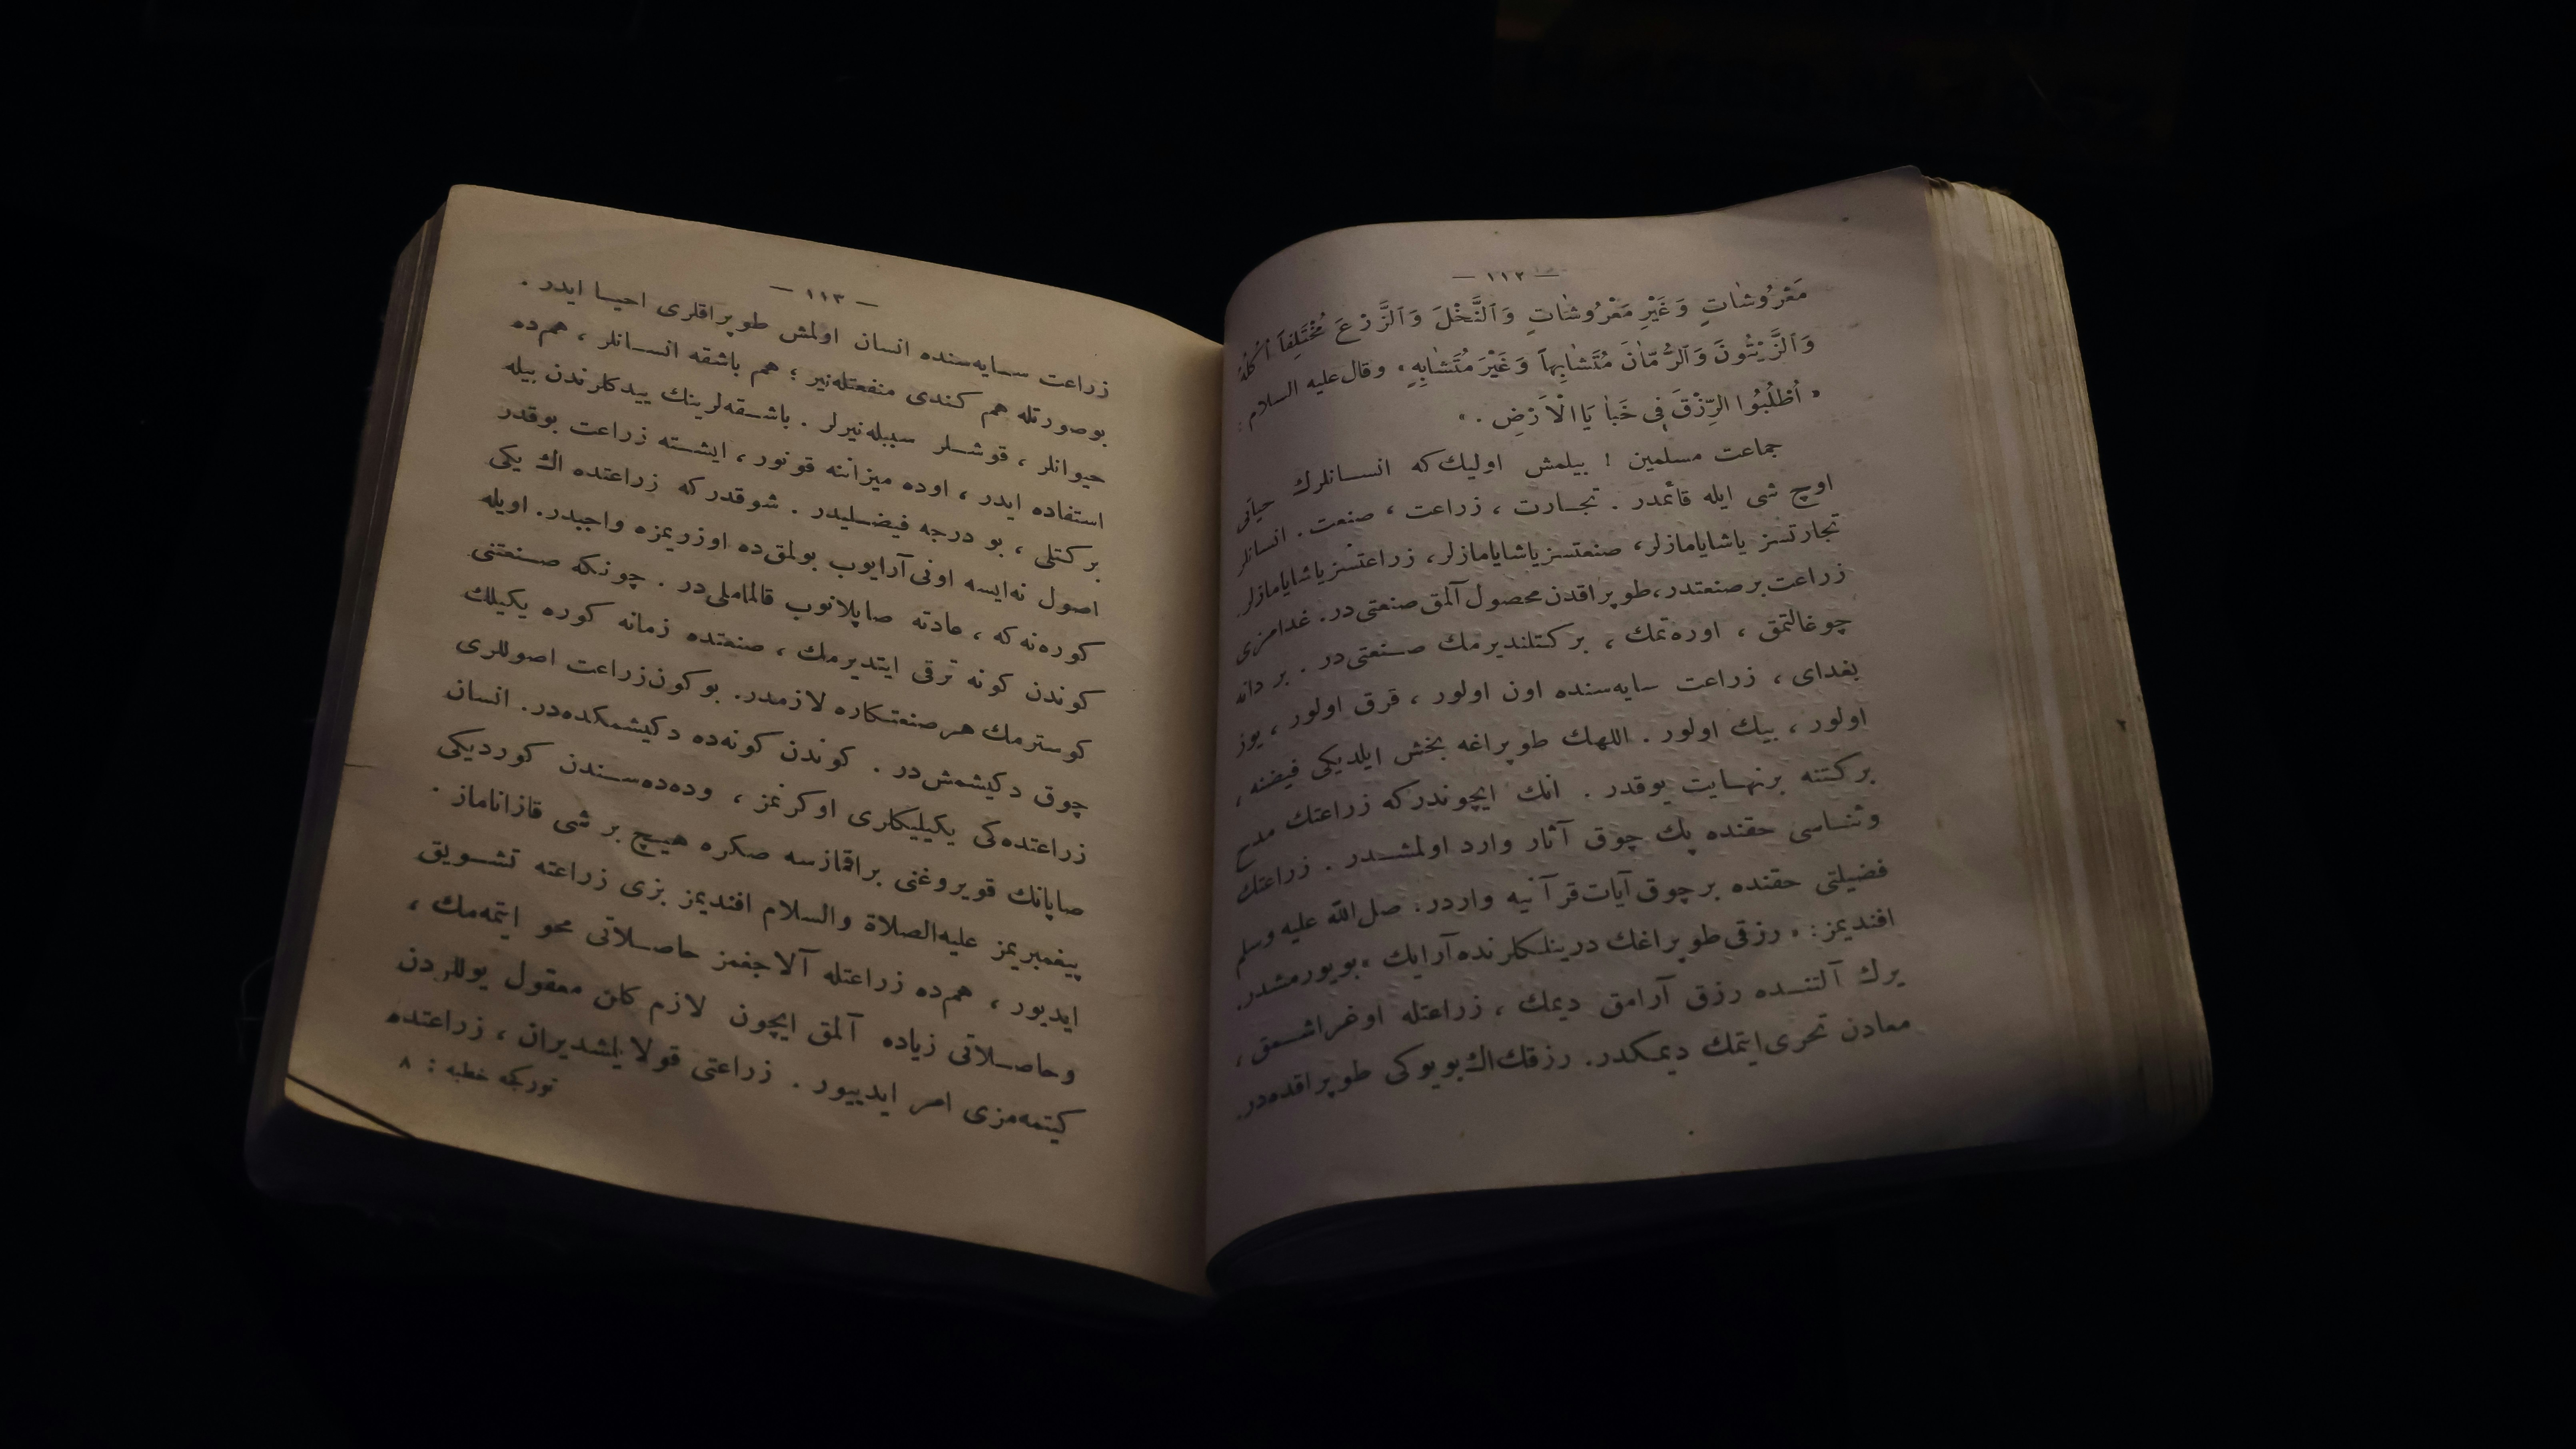 — ١١٢ —
مَعْرُوشَاتٍ وَغَيْرِ مَعْرُوشَاتٍ وَٱلنَّخْلَ وَٱلزَّرْعَ مُخْتَلِفاً اُكُلُهُ
وَٱلزَّيْتُونَ وَٱلرُّمَّانَ مُتَشَابِهاً وَغَيْرَ مُتَشَابِهٍ» وقال عليه السلام :
« اُطْلُبُوا الرِّزْقَ فِى خَبَايَا الْاَرْضِ . »
جماعت مسلمين ! بيلمش اوليك كه انسانلرك حياتى
اوچ شى ايله قائمدر . تجارت ، زراعت ، صنعت . انسانلر
تجارتسز ياشاياماز لر، صنعتسز ياشايامازلر، زراعتسز ياشايامازلر.
زراعت بر صنعتدر، طوپراقدن محصول آلمق صنعتى در. غدامزى
چوغالتمق ، اوره تمك ، بركتلنديرمك صنعتى در . بر دانه
بغداى ، زراعت سايه سنده اون اولور ، قرق اولور ، يوز
اولور ، بيك اولور . اللهك طوپراغه بخش ايلديكى فيضنه ،
بركتنه برنهايت يوقدر . انك ايچوندركه زراعتك مدح
وثناسى حقنده پك چوق آثار وارد اولمشدر . زراعتك
فضيلتى حقنده بر چوق آيات قرآنيه واردر. صل الله عليه وسلم
افنديمز: « رزقى طوپراغك درينلكلرنده آرايك » بويورمشدر.
يرك آلتنده رزق آرامق ديمك ، زراعتله اوغراشمق ،
معادن تحرى ايتمك ديمكدر. رزقك اك بويوكى طوپراقده در.
— ١١٣ —
زراعت سايه سنده انسان اولمش طوپراقلرى احيا ايدر .
بوصورتله هم كندى منفعتله نير ؛ هم باشقه انسانلر ، هم ده
حيوانلر ، قوشلر سببله نيرلر . باشقه لرينك ييدكلرندن بيله
استفاده ايدر ، اوده ميزاننه قونور ، ايشته زراعت بوقدر
بركتلى ، بو درجه فيضليدر . شوقدر كه زراعتده اك يكى
اصول نه ايسه اونى آرايوب بولمق ده اوزريمزه واجبدر. اويله
كوره نه كه ، عادته صاپلانوب قالماملى در . چونكه صنعتنى
كوندن كونه ترقى ايتديرمك ، صنعتده زمانه كوره يكيلك
كوسترمك هر صنعتكاره لازمدر. بوكون زراعت اصوللرى
چوق دكيشمش در . كوندن كونه ده دكيشمكده در. انسان
زراعتده كى يكيليكلرى اوكرنمز ، وده ده سندن كورديكى
صاپانك قويروغنى براقمازسه صكره هيچ بر شى قازاناماز .
پيغمبريمز عليه الصلاة والسلام افنديمز بزى زراعته تشويق
ايديور ، هم ده زراعتله آلاجغمز حاصلاتى محو ايتمه مك ،
وحاصلاتى زياده آلمق ايچون لازم كلن معقول يوللردن
كيتمه مزى امر ايدييور . زراعتى قولايلشديران ، زراعتده
تورکجه خطبه : ٨